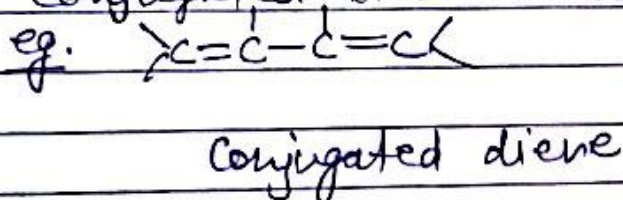 eg. >C=C-C=C<
Conjugated diene